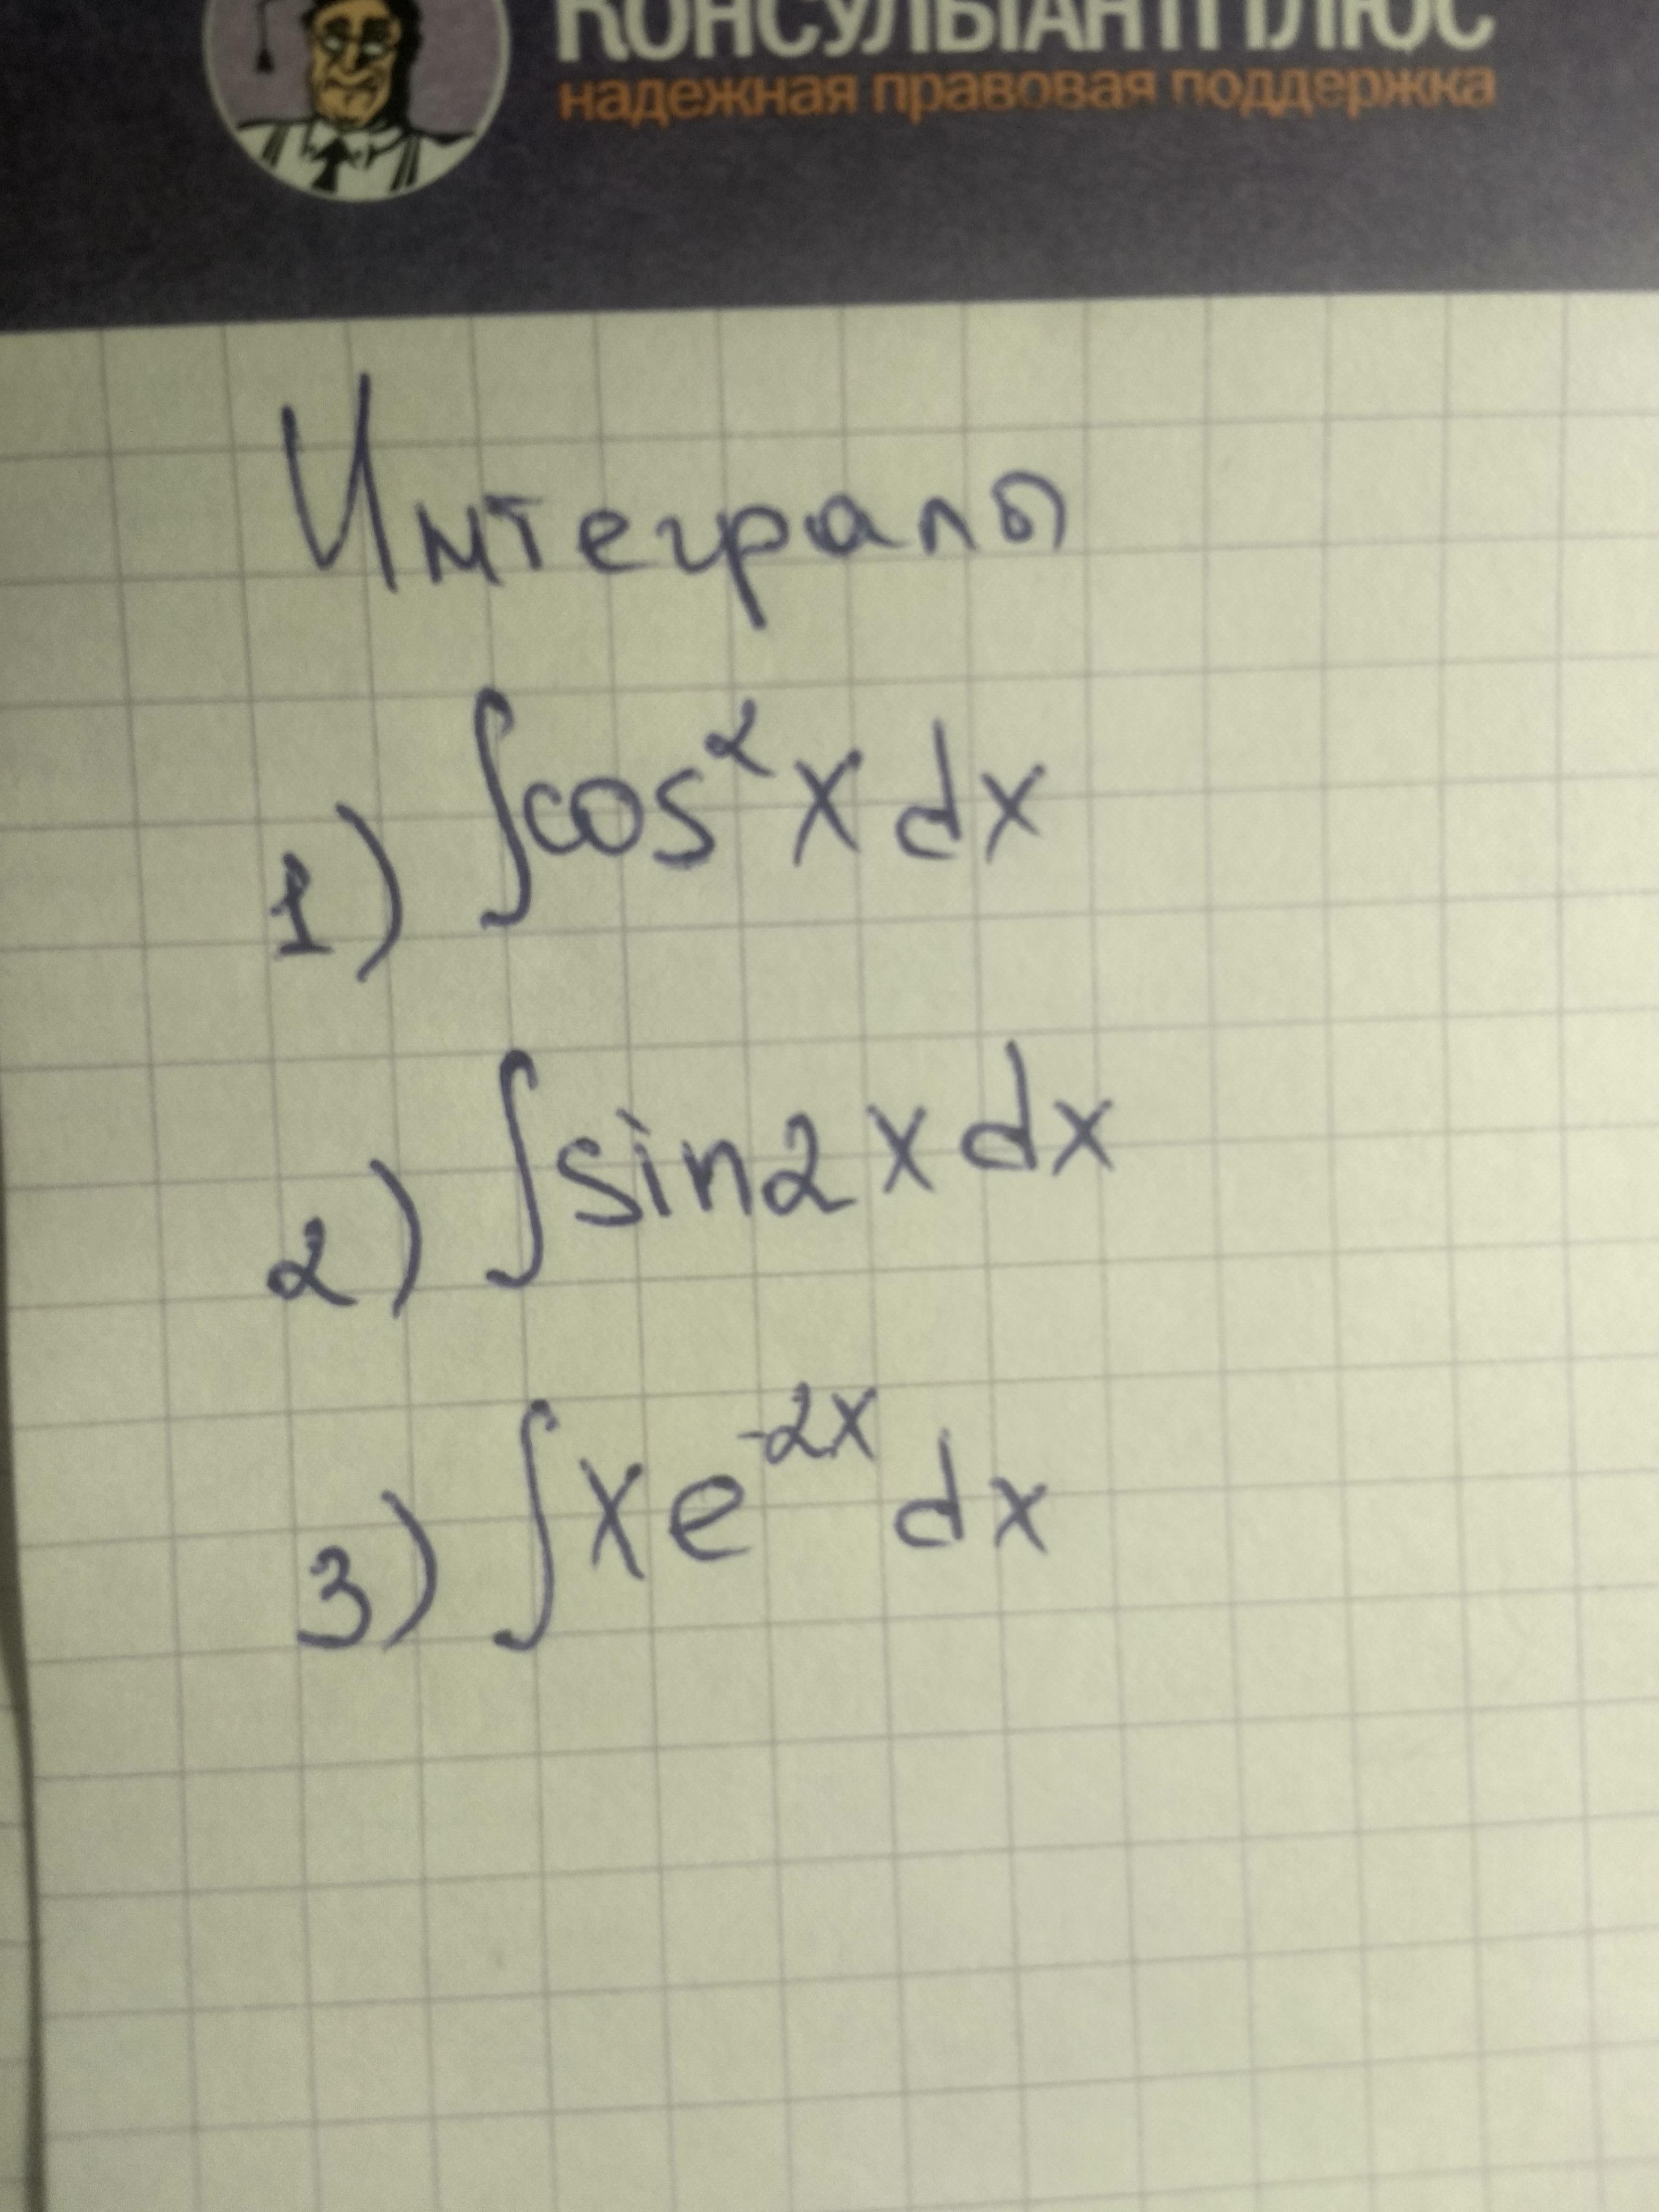 КОНСУЛЬТАНТПЛЮС
надежная правовая поддержка
Интегралы
1) ∫cos²x dx
2) ∫sin2x dx
3) ∫xe⁻²ˣ dx